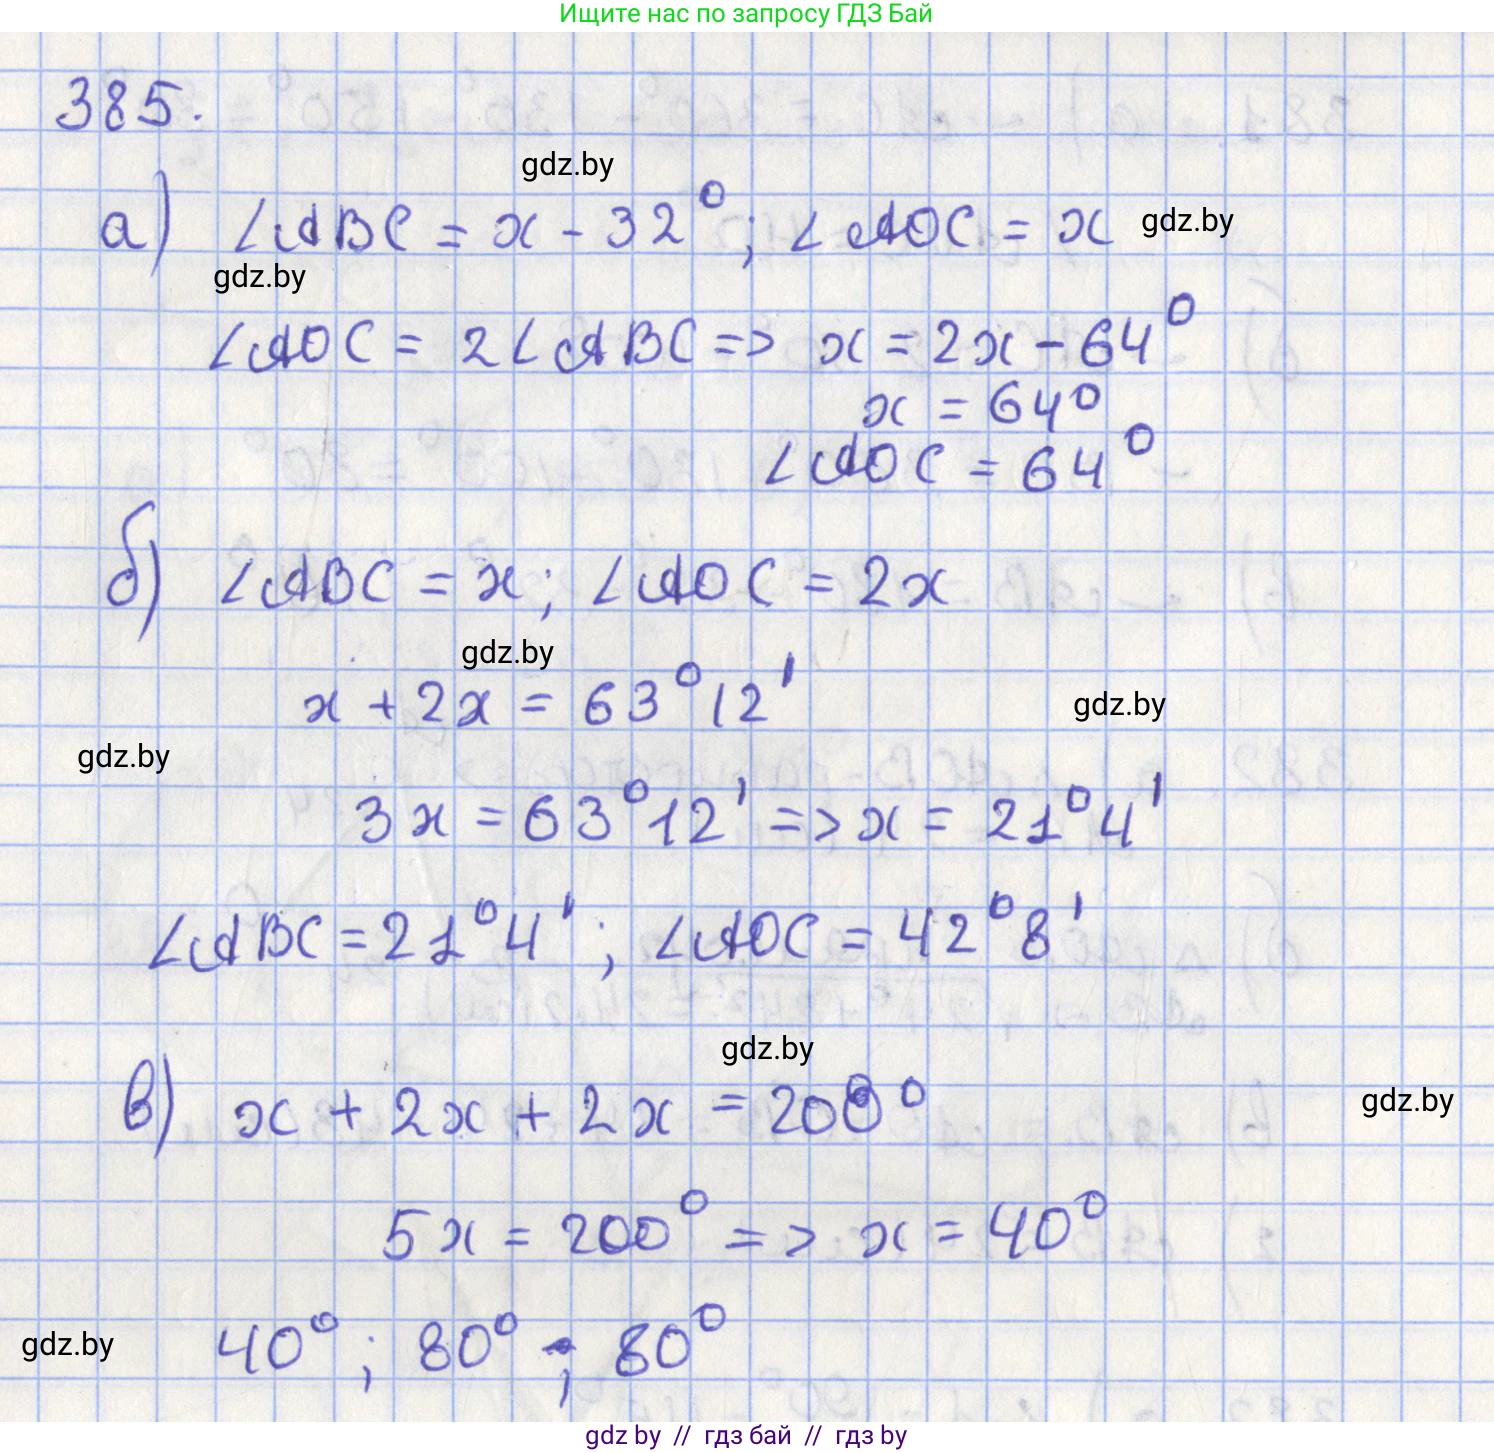 Ищите нас по запросу ГДЗ Бай
385.
gdz.by
а) ∠ABC = x - 32°; ∠AOC = x gdz.by
gdz.by
∠AOC = 2∠ABC => x = 2x - 64°
x = 64°
∠AOC = 64°
б) ∠ABC = x; ∠AOC = 2x
gdz.by
x + 2x = 63°12'
gdz.by
gdz.by
3x = 63°12' => x = 21°4'
∠ABC = 21°4'; ∠AOC = 42°8'
gdz.by
в) x + 2x + 2x = 200°
gdz.by
5x = 200° => x = 40°
gdz.by 40°; 80°; 80°
gdz by // гдз бай // гдз by